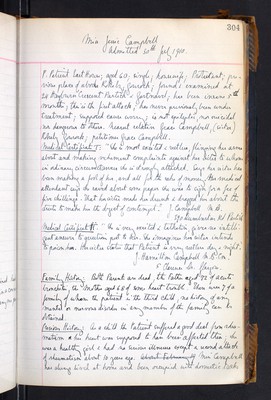 304
Miss Jessie Campbell
Admitted 20th July 1910.
P. Patient last Home; aged 60; single, housewife, Protestant; pre-
vious place of abode Rothesay, found & examined at
24 Crescent Partick - has been insane 3
month; this is the first attack, has never previously been under
treatment; supposed cause worry; is not epileptic, nor suicidal
nor dangerous to others. Nearest relation Jean Campbell, (sister)
Rothesay; petitioner Jean Campbell.
Medical Certificate I. "She is most excited & restless, flinging her arms
about and making vehement complaints against her sister to whom
in ordinary circumstances she is strongly attached. Says her sister has
been making a fool of her, and all for the sake of money. Her medical
attendant she raved about some paper she was to sign for a fee of
five shillings. That her sister made her drunk & dragged her about the
streets to make her the object of contempt." J. Campbell M.B.
Dumbarton Rd Partick
Medical Certificate II. "She is very excited & talkative, gives no intelli-
gent answer to question put to her. She imagines her sister intends
to poison her. Her sister states that Patient is very restless day & night.
J. Hamilton Campbell M.B. Cm.
Glasgow.
Family History. Both Parents are dead, the Father aged 72 of acute
bronchitis, the Mother aged 68 of some heart trouble. There were 7 of a
family of whom the patient is the third child, no history of any
mental or nervous disorder in any member of the family can be
obtained.
Previous History. As a child the Patient suffered a good deal from
and her heart was supposed to have been affected then; she
was a healthy girl & had no serious illnesses except a second attack
of rheumatism about 10 years ago. Miss Campbell
has always lived at home and been occupied with domestic work